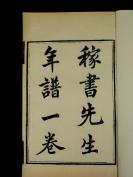 稼書先生
年譜一卷